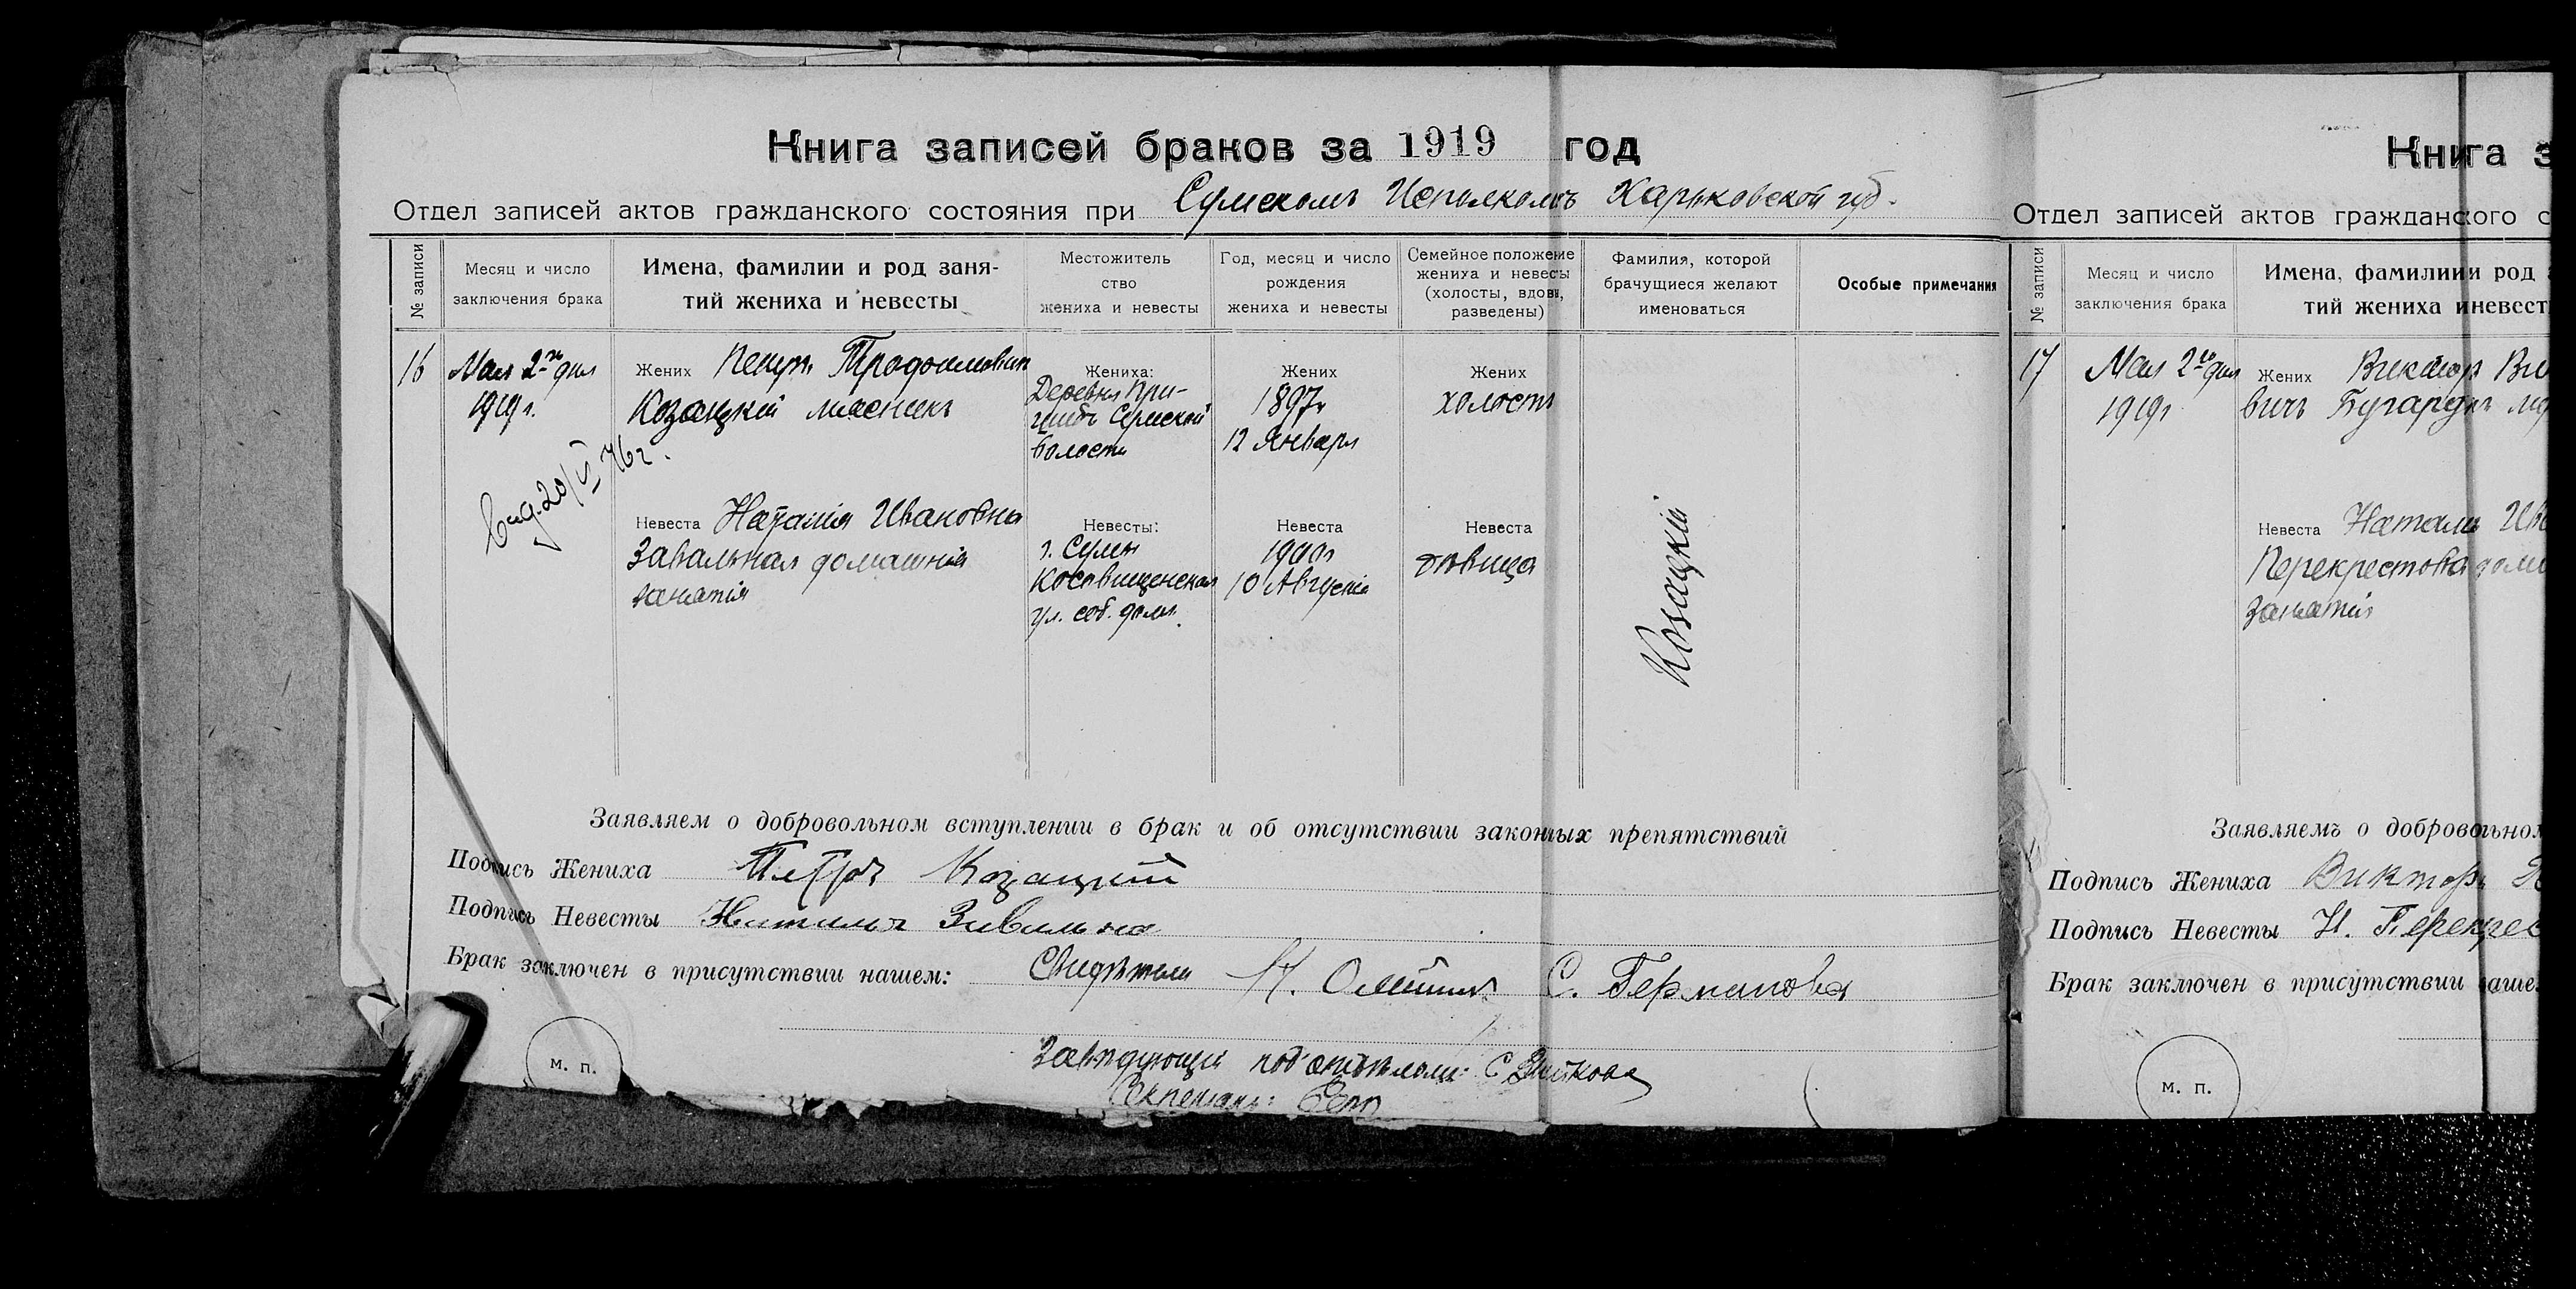 Книга записей браков за 1919 год
Отдел записей актов гражданского состояния при Сумскомъ Исполкомъ Харьковской губ.
№ записи
Месяц и число
заключения брака
Имена, фамилии и род заня-
тий жениха и невесты
Местожитель
ство
жениха и невесты
Год, месяц и число
рождения
жениха и невесты
Семейное положение
жениха и невесты
(холосты, вдовы,
разведены)
Фамилия, которой
брачущиеся желают
именоваться
Особые примечания
16
Мая 2го дня
1919 г.
Жених Петръ
Козацкій мясникъ
Жениха:
Деревня При-
Сумской
волости
Жених
1897 г
12 Января
Жених
холостъ
Невеста Наталія Ивановна
Завальная домашнія
занятія
Невесты:
г. Сумы
ул. соб. домъ.
Невеста
1900 г
10 Августа
Невеста
дѣвица
Козацкій
Заявляем о добровольном вступлении в брак и об отсутствии законных препятствий
Подпись Жениха Петръ Козацкий
Подпись Невесты Наталья
Брак заключен в присутствии нашем: Свидѣтели Н. С. Германова
Завѣдующій под'отдѣломъ: С
Секретарь:
м. п.
Книга з
Отдел записей актов гражданского с
№ записи
Месяц и число
заключения брака
Имена, фамилии и род
тий жениха и невест
17
Мая 2го дня
1919 г
Жених Викторъ
вичъ
Невеста Наталь
Перекрестова
занятія
Заявляемъ о добровольном
Подпись Жениха Викторъ
Подпись Невесты Н. Перекрес
Брак заключен в присутствии наше
м. п.